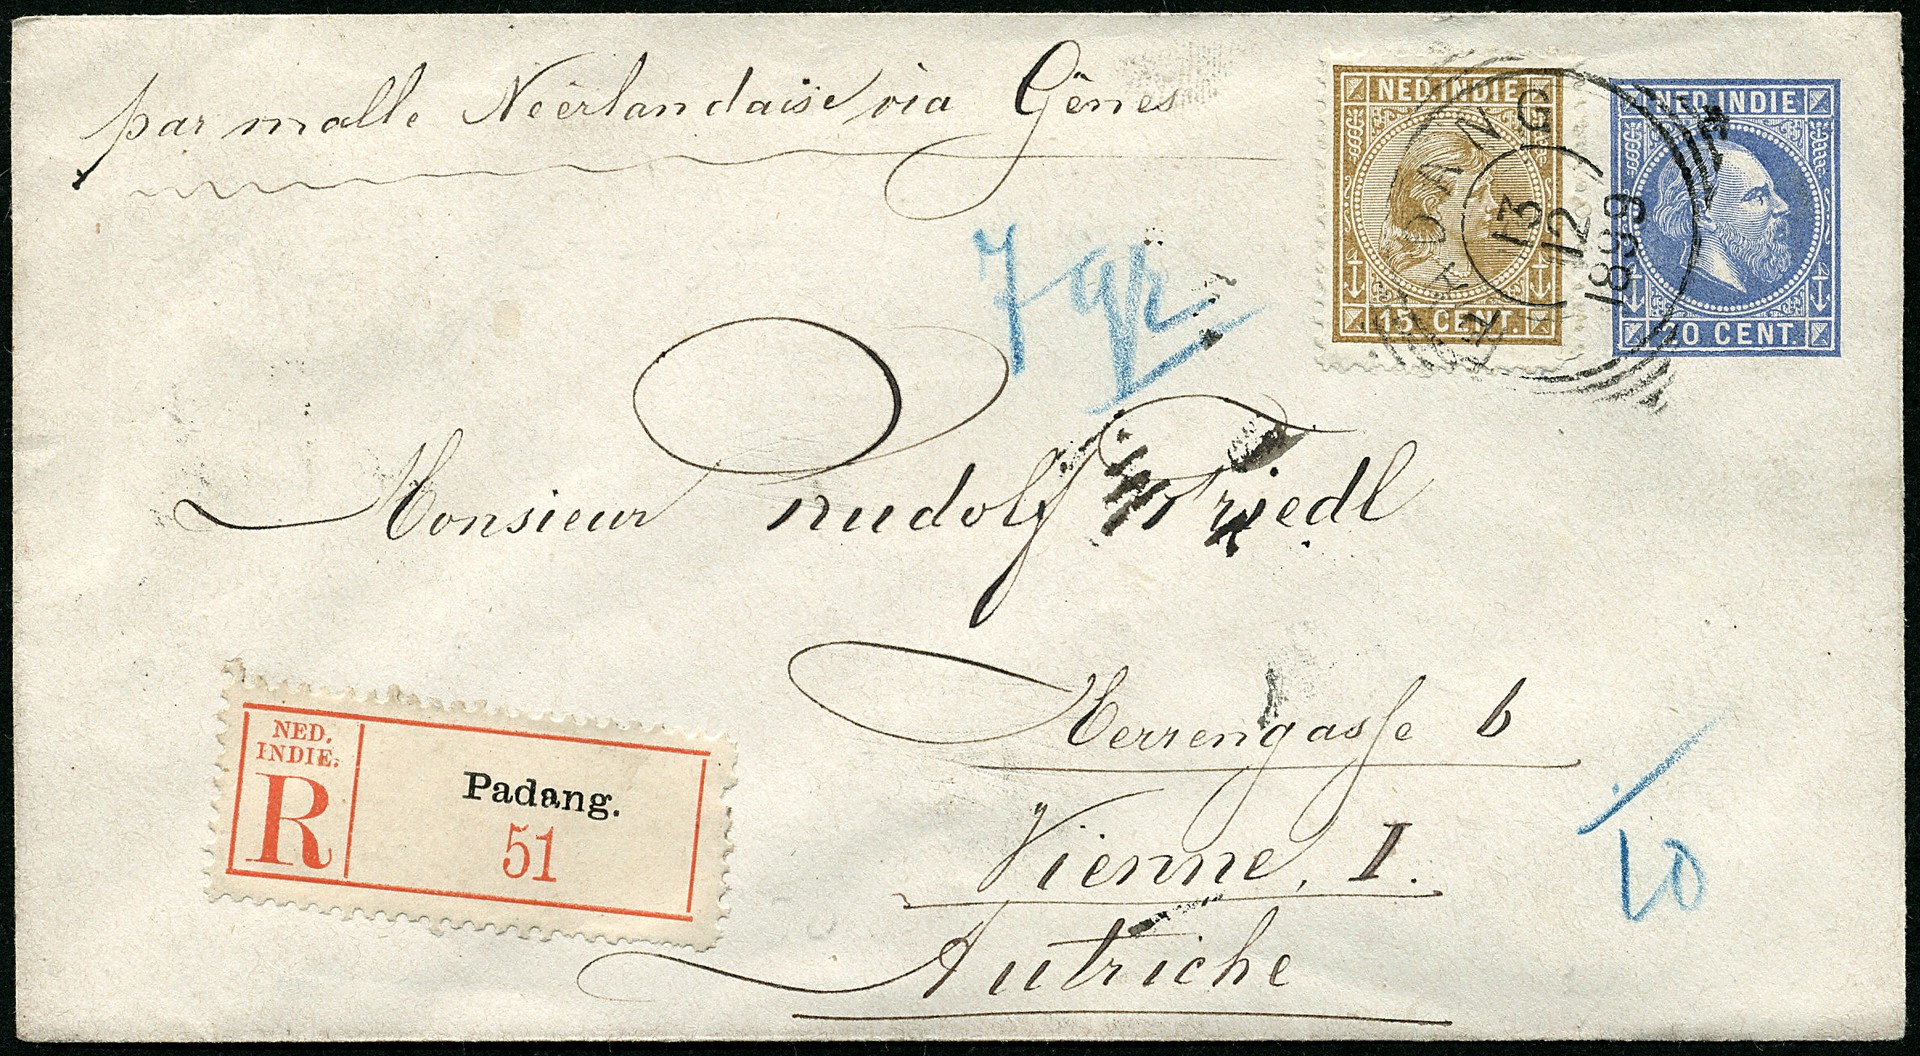 par malle Néerlandaise via Gênes
NED. INDIE
15 CENT.
NED. INDIE
20 CENT.
PADANG
13
12
1899
7 gr
Monsieur Rudolf Friedl
Herrengasse 6
Vienne, I.
Autriche
NED.
INDIE.
R
Padang.
51
10